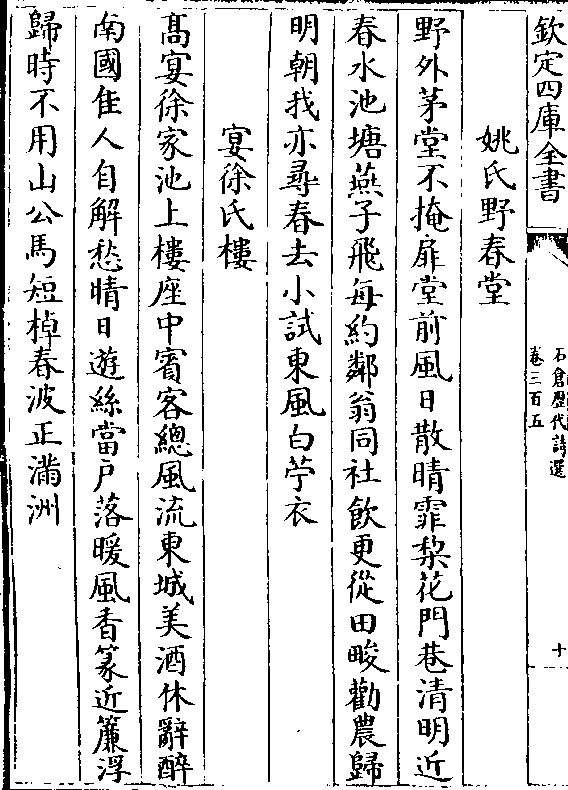 欽定四庫全書
石倉歴代詩選
卷三百五
十
姚氏野春堂
野外茅堂不掩扉堂前風日散晴霏梨花門巷清明近
春水池塘燕子飛每約鄰翁同社飲更從田畯勸農歸
明朝我亦尋春去小試東風白苧衣
宴徐氏樓
髙宴徐家池上樓座中賓客總風流東城美酒休辭醉
南國佳人自解愁晴日遊絲當户落暖風香篆近簾浮
歸時不用山公馬短棹春波正滿洲